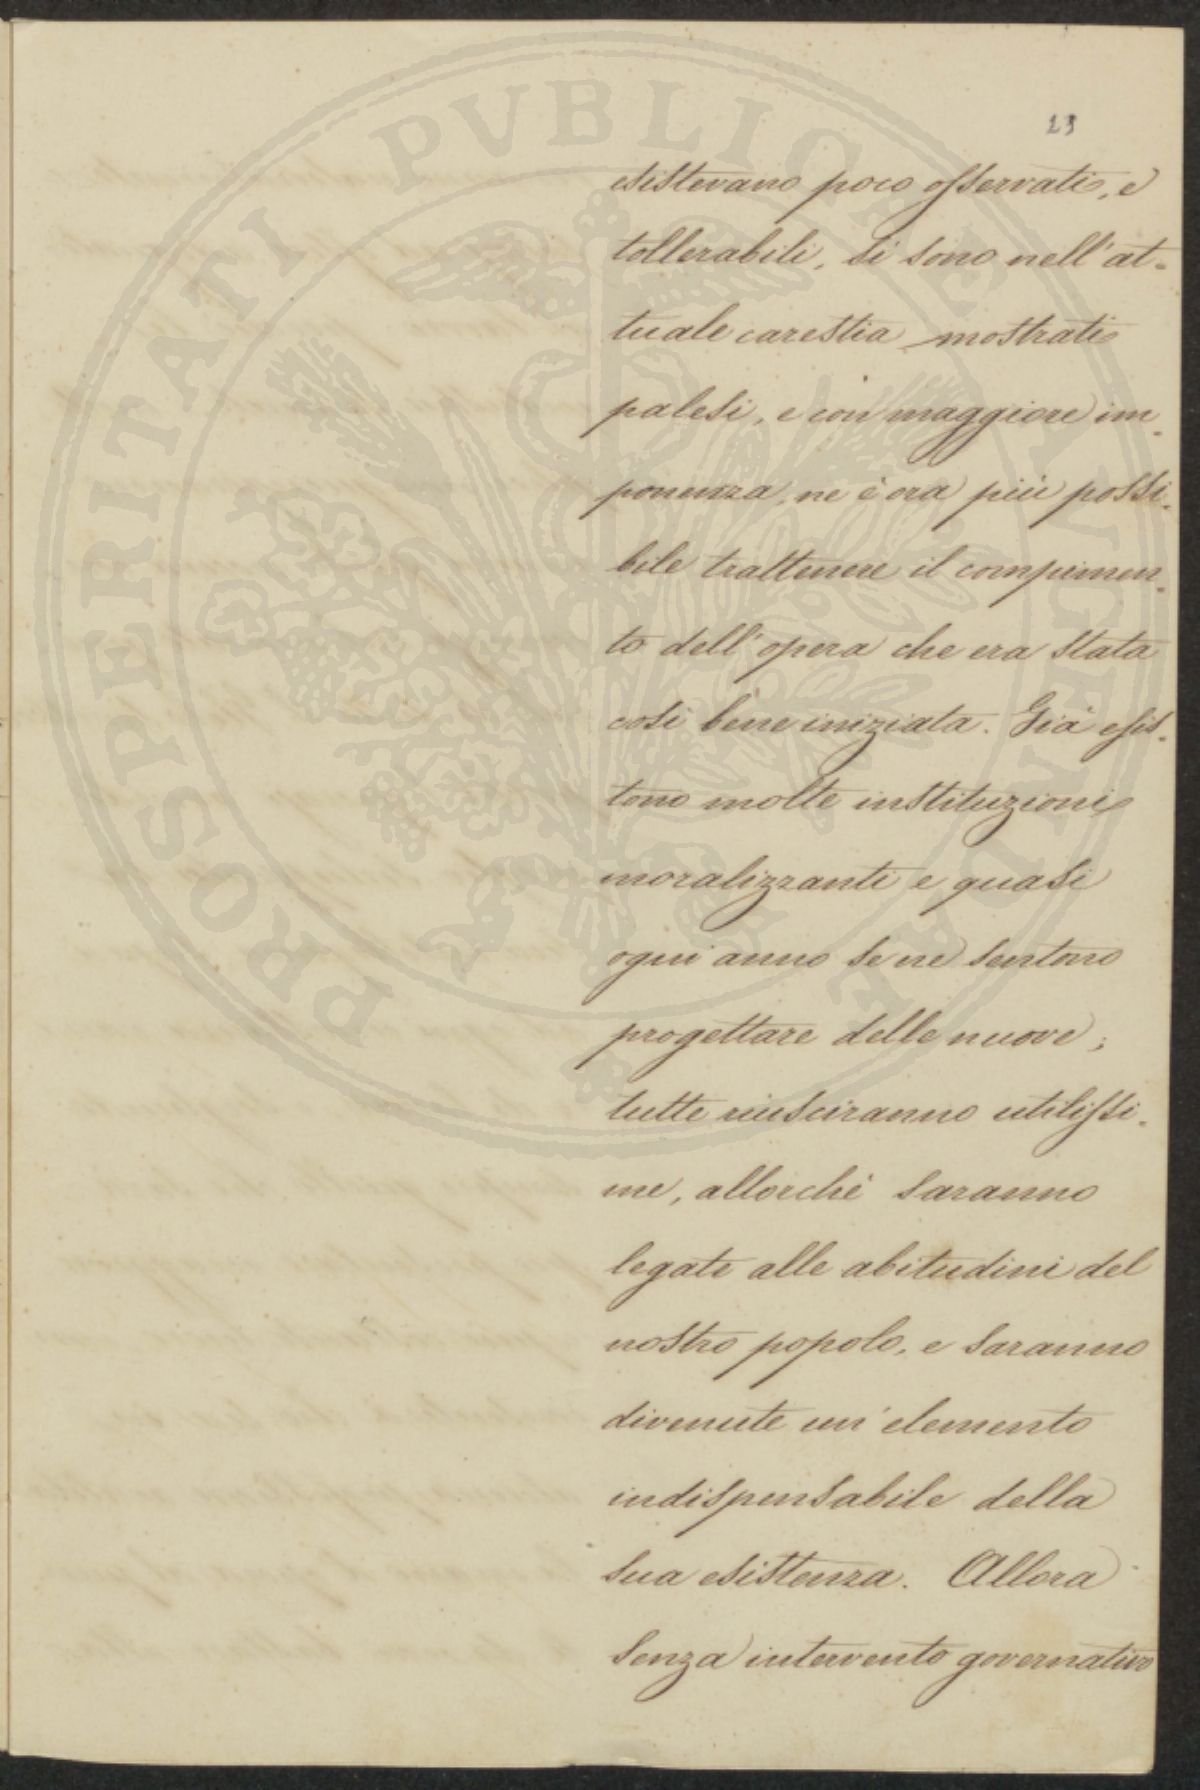 PROSPERITATI PUBLICAE AUGENDAE
23
esistevano poco osservati, e
tollerabili, si sono nell'at-
tuale carestia mostrati
palesi, e con maggiore im-
ponenza, ne è ora più possi-
bile trattenere il compimen-
to dell'opera che era stata
così bene iniziata. Già esis-
tono molte instituzioni
moralizzanti e quasi
ogni anno se ne sentono
progettare delle nuove;
tutte riusciranno utilissi-
me, allorchè saranno
legate alle abitudini del
nostro popolo, e saranno
divenute un'elemento
indispensabile della
sua esistenza. Allora
senza intervento governativo